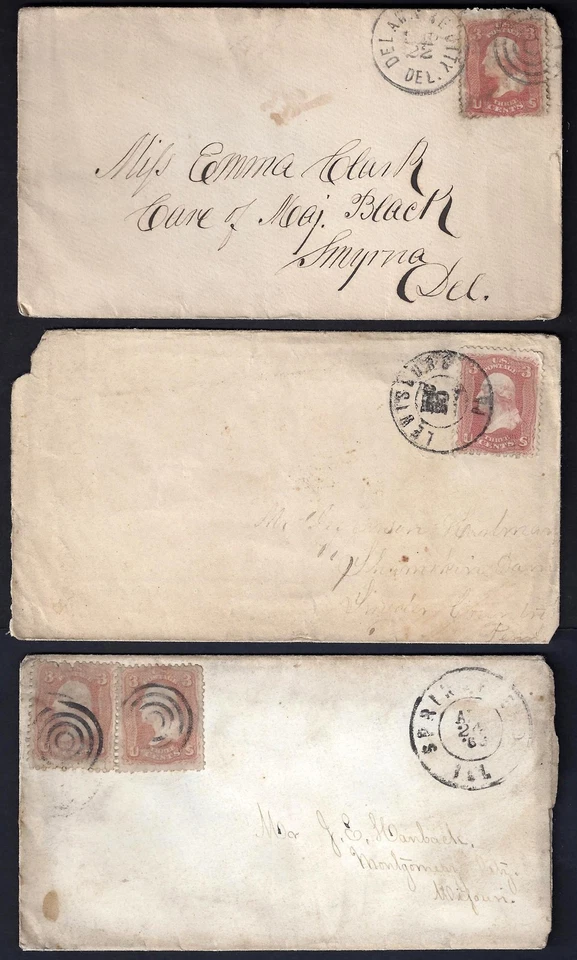 DELAWARE CITY
22
DEL.
3 3
U THREE CENTS S
Miss Emma Clark
Care of Maj. Black
Smyrna
Del.
LEWISBURG
U.S.
POSTAGE
3 3
U THREE CENTS S
Mr
Shamokin
Penn
3 3
3 3
U S
SPRINGFIELD
ILL
Mr J. E. Hanback.
Montgomery City.
Missouri.